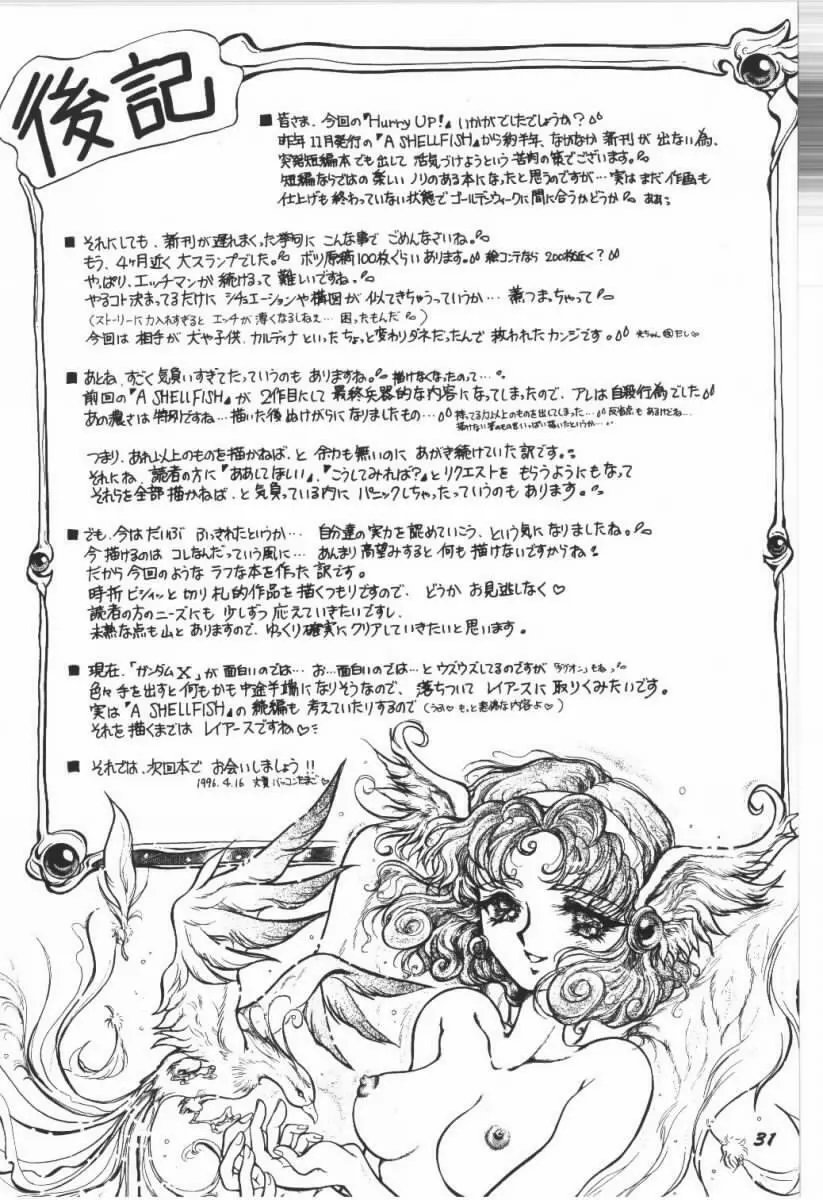 後記
■皆さま、今回の『Hurry UP!』いかがでしたでしょうか?
昨年11月発行の『A SHELLFISH』から約半年、なかなか新刊が出ない為、
突発短編本でも出して活気づけようという苦肉の策でございます。
短編ならではの楽しいノリのある本になったと思うのですが…実はまだ作画も
仕上げも終わっていない状態でゴールデンウィークに間に合うかどうか。ああ
■それにしても、新刊が遅れまくった挙句にこんな事でごめんなさいね。
もう、4ヶ月近く大スランプでした。ボツ原稿100枚ぐらいあります。絵コンテなら200枚近く?
やっぱり、エッチマンガ続けるって難しいですね。
やるコト決まってるだけにシチュエーションや構図が似てきちゃうっていうか…煮つまっちゃって
(ストーリーに力入れすぎるとエッチが薄くなるしねェ…困ったもんだ)
今回は相手が犬や子供、カルディナといったちょっと変わりダネだったんで救われたカンジです。
■あとね、すごく気負いすぎてたっていうのもありますね。描けなくなったのって…
前回の『A SHELLFISH』が2作目にして最終兵器的な内容になってしまったので、アレは自殺行為でした
あの濃さは特別ですね…描いた後ぬけがらになりましたもの…持ってる力以上のものを出してしまった…反省点もあるけどね…
描けない筈のもの思いっぱい描いたというか…
つまり、あれ以上のものを描かねば、と余力も無いのにあがき続けていた訳です。
それにね、読者の方に『ああしてほしい』、『こうしてみれば?』とリクエストをもらうようにもなって
それらを全部描かねば、と気負っている内にパニックしちゃったっていうのもあります。
■でも、今はだいぶふっきれたというか…自分達の実力を認めていこう、という気になりましたね。
今描けるのはコレなんだっていう風に…あんまり高望みすると何も描けないですからね
だから今回のようなラフな本を作った訳です。
時折ビシィッと切り札的作品を描くつもりですので、どうかお見逃しなく♡
読者の方のニーズにも少しずつ応えていきたいですし、
未熟な点も山とありますので、ゆっくり確実にクリアしていきたいと思います。
■現在、「ガンダムX」が面白いのでは…お…面白いのでは…とウズウズしてるのですが
色々手を出すと何もかも中途半端になりそうなので、落ちついてレイアースに取りくみたいです。
実は『A SHELLFISH』の続編も考えていたりするので(うふ♡もっと悪趣な内容よ♡)
それを描くまではレイアースですね♡
■それでは、次回本でお会いしましょう!!
1996.4.16
31